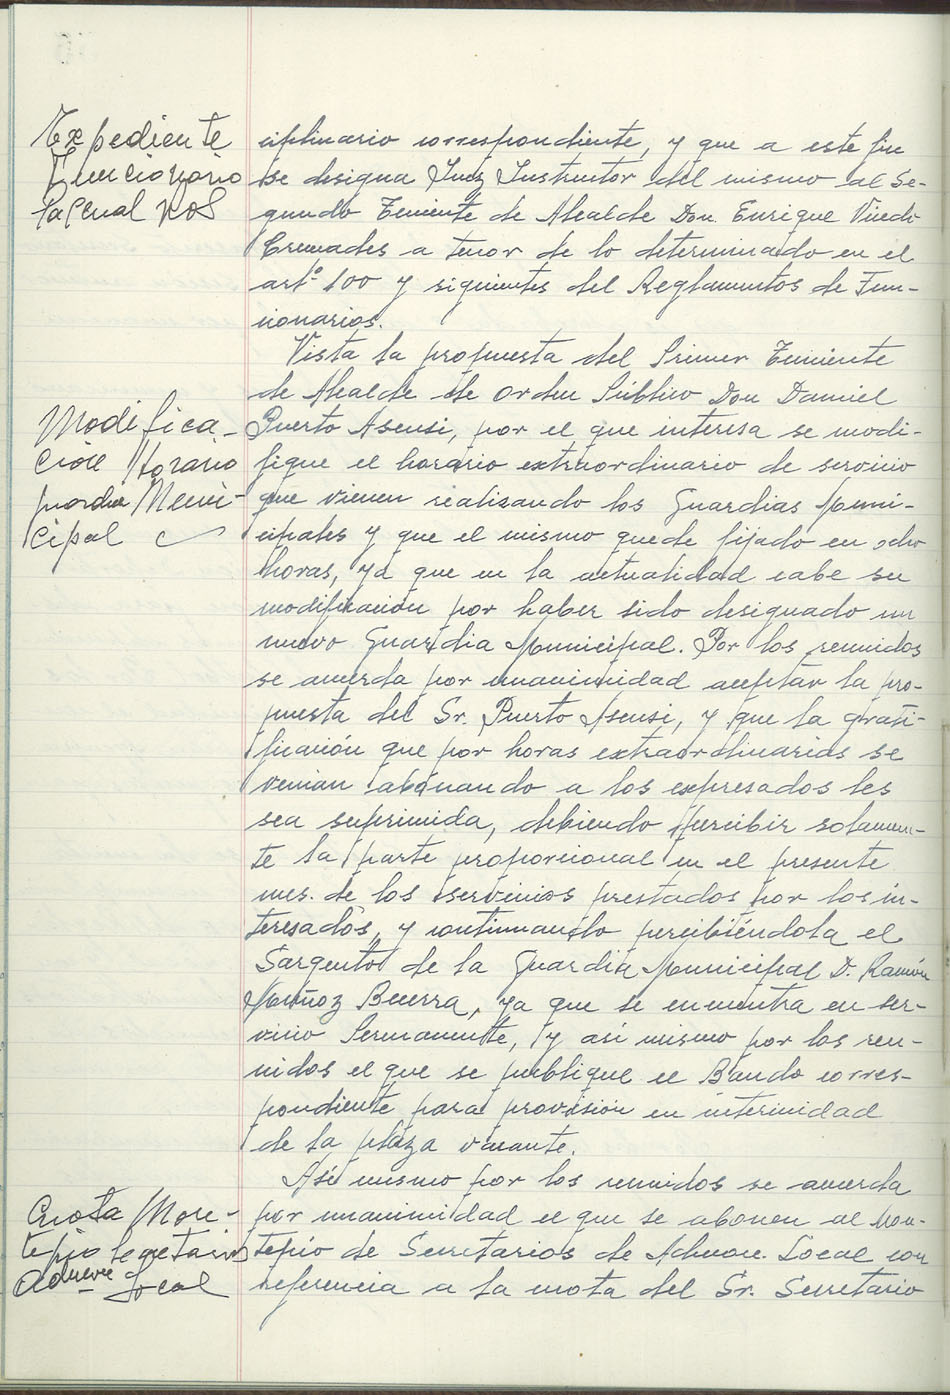 Expediente
Funcionario
ciplinario correspondiente, y que a este fin
se designa Juez Instructor del mismo al Se-
gundo Teniente de Alcalde Don Enrique
Cremades a tenor de lo determinado en el
artº 100 y siguientes del Reglamentos de Fun-
cionarios.
Vista la propuesta del Primer Teniente
de Alcalde de Orden Público Don Daniel
Modifica-
ción Horario
Guardia Muni-
cipal
Puerto Asensi, por el que interesa se modi-
fique el horario extraordinario de servicio
que vienen realizando los Guardias Muni-
cipales y que el mismo quede fijado en ocho
horas, ya que en la actualidad cabe su
modificación por haber sido designado un
nuevo Guardia Municipal. Por los reunidos
se acuerda por unanimidad aceptar la pro-
puesta del Sr. Puerto Asensi, y que la grati-
ficación que por horas extraordinarias se
venian abonando a los expresados les
sea suprimida, debiendo percibir solamen-
te la parte proporcional en el presente
mes. de los servicios prestados por los in-
teresados, y continuando percibiéndola el
Sargento de la Guardia Municipal D. Ramón
Muñoz Becerra, ya que se encuentra en ser-
vicio Permanente, y así mismo por los reu-
nidos el que se publique el Bando corres-
pondiente para provisión en interinidad
de la plaza vacante.
Así mismo por los reunidos se acuerda
Cuota Mon-
tepio Secretarios
Admón Local
por unanimidad el que se abonen al Mon-
tepio de Secretarios de Admon. Local con
referencia a la cuota del Sr. Secretario